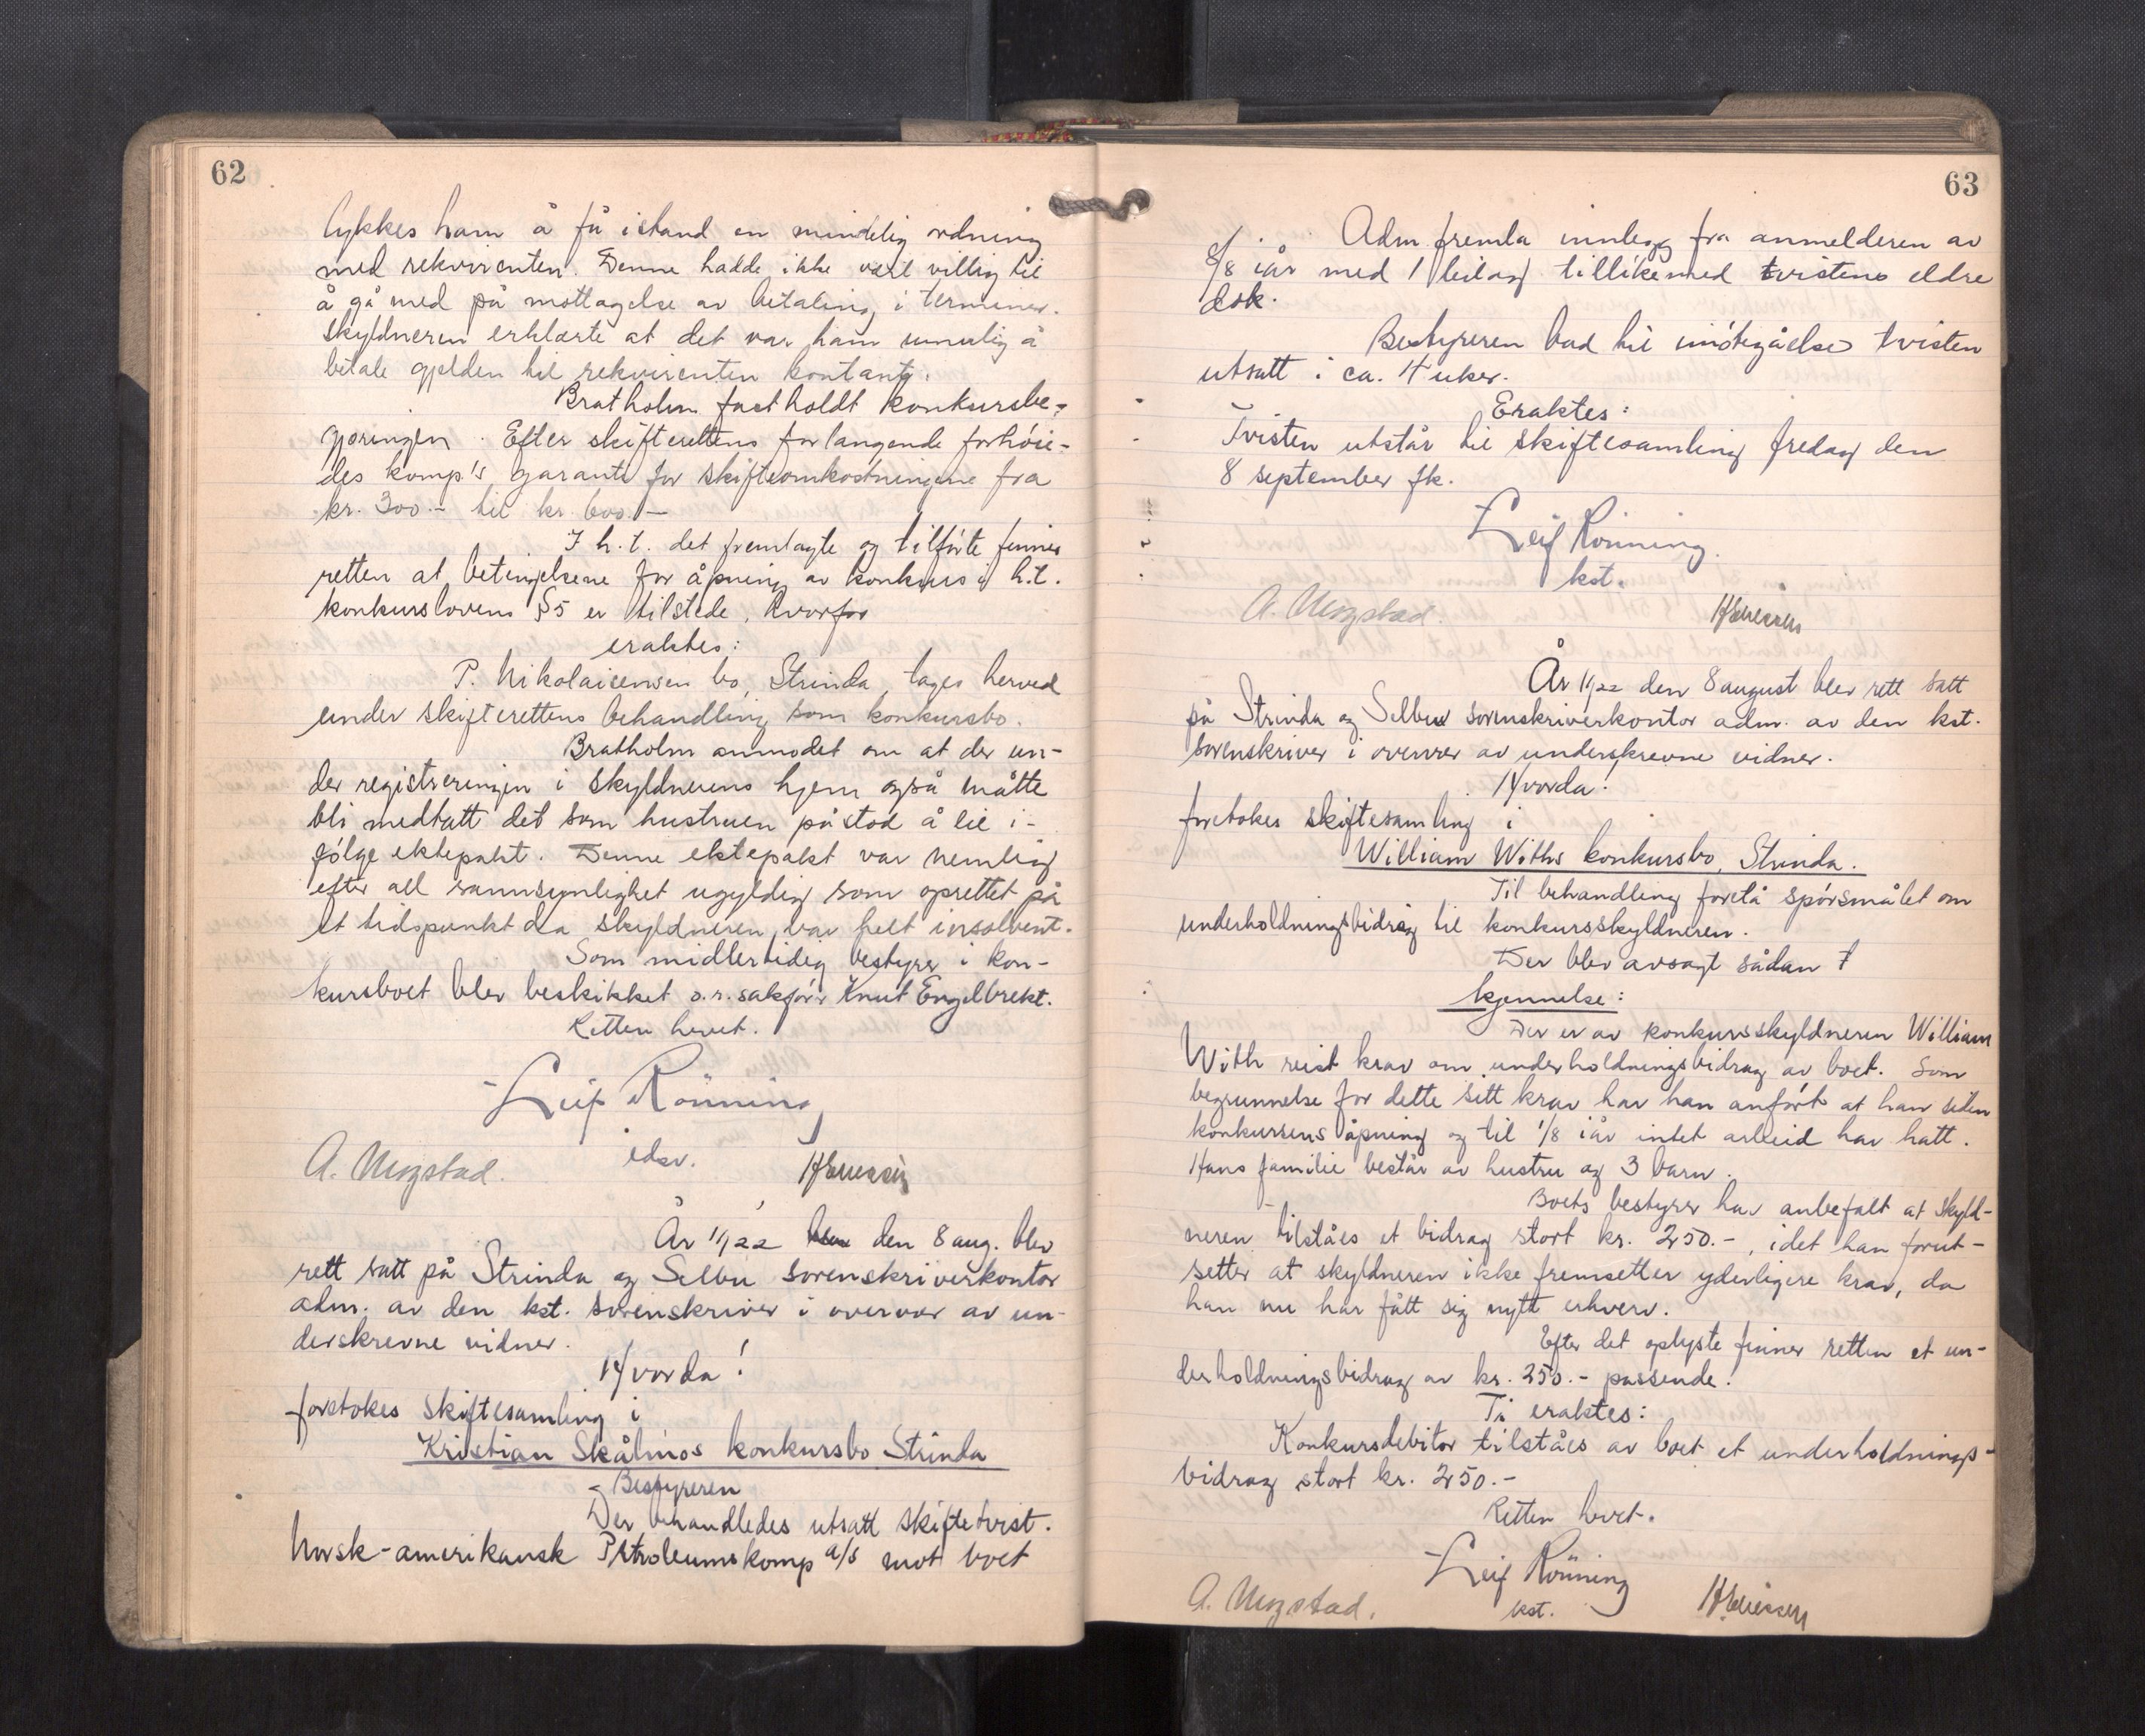 62
lykkes ham å få istand en mindelig ordning
med rekvirenten. Denne hadde ikke vært villig til
å gå med på mottagelse av betaling i terminer.
Skyldneren erklærte at det var ham umulig å
betale gjelden til rekvirenten kontant.
Bratholm fastholdt konkursbe-
gjæringen. Efter skifterettens forlangende forhøie-
des komp's garanti for skifteomkostningene fra
kr. 300.- til kr. 600.-
I h.t. det fremlagte og tilførte finner
retten at betingelsene for åpning av konkurs i h.t.
konkurslovens §5 er tilstede, hvorfor
eraktes:
P. Nikolaisensen bo, Strinda, tages herved
under skifterettens behandling som konkursbo.
Bratholm anmodet om at der un-
der registreringen i skyldnerens hjem også måtte
bli medtatt det som hustruen påstod å eie i-
følge ektepakt. Denne ektepakt var nemlig
efter all sannsynlighet ugyldig som oprettet på
et tidspunkt da skyldneren var helt insolvent.
Som midlertidig bestyrer i kon-
kursboet blev beskikket o.r.sakfører Knut Engelbrekt.
Retten hevet.
Leif Rönning
edsv.
A. Mogstad.
År 1922 den 8 aug. blev
rett satt på Strinda og Selbu sorenskriverkontor
adm. av den kst. sorenskriver i overvær av un-
derskrevne vidner.
Hvorda!
foretokes skiftesamling i
Kristian Skålmos konkursbo Strinda
Bestyreren
Der behandledes utsatt skiftetvist.
Norsk-amerikansk Petroleumskomp a/s mot boet
63
Adm. fremla innlegg fra anmelderen av
8/8 iår med 1 bilag tillikemed tvistens eldre
dok.
Bestyreren bad til imøtegåelse tvisten
utsatt i ca. 4 uker.
Eraktes:
Tvisten utstår til skiftesamling fredag den
8 september fk.
Leif Rönning.
kst.
A. Mogstad.
År 1922 den 8 august blev rett satt
på Strinda og Selbu sorenskriverkontor adm. av den kst.
sorenskriver i overvær av underskrevne vidner.
Hvorda!
foretokes skiftesamling i
William Withs konkursbo, Strinda.
Til behandling forelå spørsmålet om
underholdningsbidrag til konkursskyldneren.
Der blev avsagt sådan
kjennelse:
Der er av konkursskyldneren William
With reist krav om underholdningsbidrag av boet. Som
begrunnelse for dette sitt krav har han anført at han siden
konkursens åpning og til 1/8 iår intet arbeid har hatt.
Hans familie består av hustru og 3 barn.
Boets bestyrer har anbefalt at skyld-
neren tilståes et bidrag stort kr. 250.-, idet han forut-
setter at skyldneren ikke fremsetter yderligere krav, da
han nu har fått sig nytt erhverv.
Efter det oplyste finner retten et un-
derholdningsbidrag av kr. 250.- passende.
Ti eraktes:
Konkursdebitor tilståes av boet et underholdnings-
bidrag stort kr. 250.-
Retten hevet.
Leif Rönning
kst.
A. Mogstad.